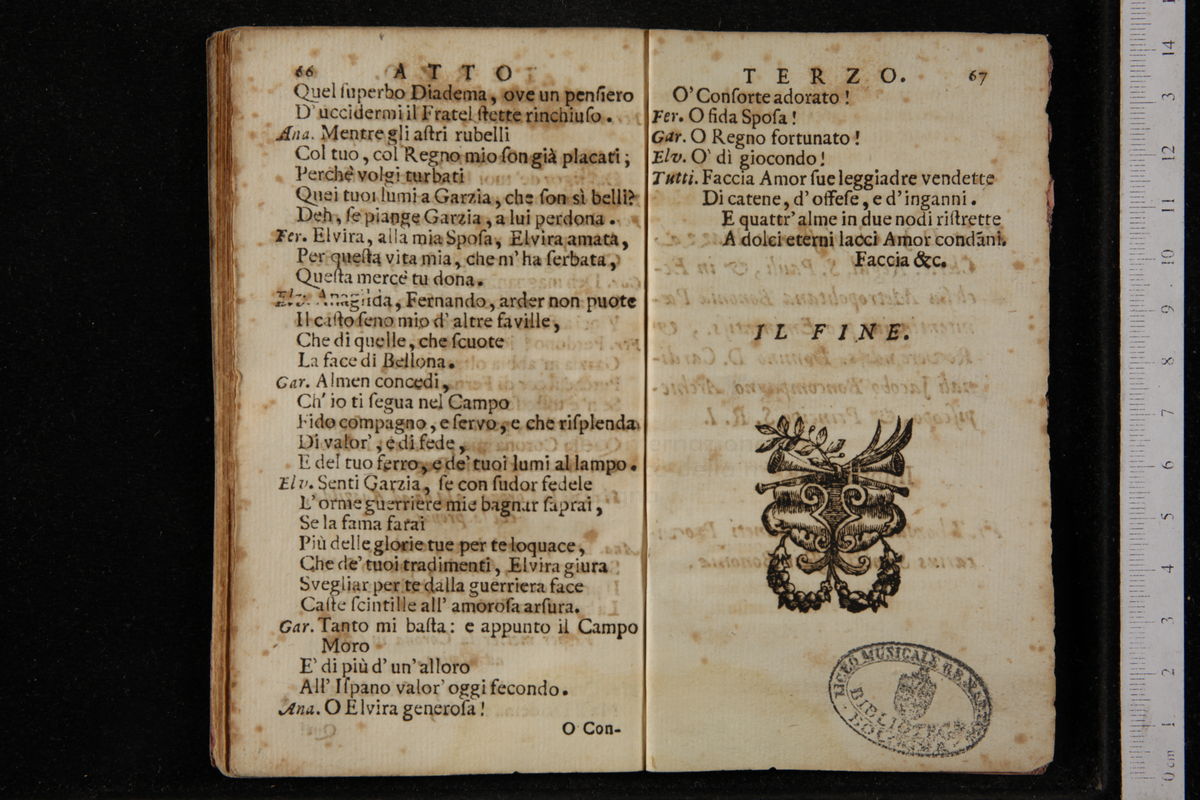 66 ATTO
Quel ſuperbo Diadema, ove un penſiero
D'uccidermi il Fratel ſtette rinchiuſo.
Ana. Mentre gli aſtri rubelli
Col tuo, col Regno mio ſon già placati;
Perchè volgi turbati
Quei tuoi lumi a Garzia, che ſon sì belli?
Deh, ſe piange Garzia, a lui perdona.
Fer. Elvira, alla mia Spoſa, Elvira amata,
Per queſta vita mia, che m'ha ſerbata,
Queſta mercè tu dona.
Elv. Anagilda, Fernando, arder non puote
Il caſto ſeno mio d'altre faville,
Che di quelle, che ſcuote
La face di Bellona.
Gar. Almen concedi,
Ch'io ti ſegua nel Campo
Fido compagno, e ſervo, e che riſplenda
Di valor', e di fede,
E del tuo ferro, e de' tuoi lumi al lampo.
Elv. Senti Garzia, ſe con ſudor fedele
L'orme guerriere mie bagnar ſaprai,
Se la fama farai
Più delle glorie tue per te loquace,
Che de' tuoi tradimenti, Elvira giura
Svegliar per te dalla guerriera face
Caſte ſcintille all' amoroſa arſura.
Gar. Tanto mi baſta: e appunto il Campo
Moro
E' di più d'un'alloro
All' Iſpano valor' oggi fecondo.
Ana. O Elvira generoſa!
O Con-
TERZO. 67
O' Conſorte adorato!
Fer. O fida Spoſa!
Gar. O Regno fortunato!
Elv. O' dì giocondo!
Tutti. Faccia Amor ſue leggiadre vendette
Di catene, d'offeſe, e d'inganni.
E quattr'alme in due nodi riſtrette
A dolci eterni lacci Amor condãni.
Faccia &c.
IL FINE.
LICEO MUSICALE
BIBLIOTECA
BOLOGNA